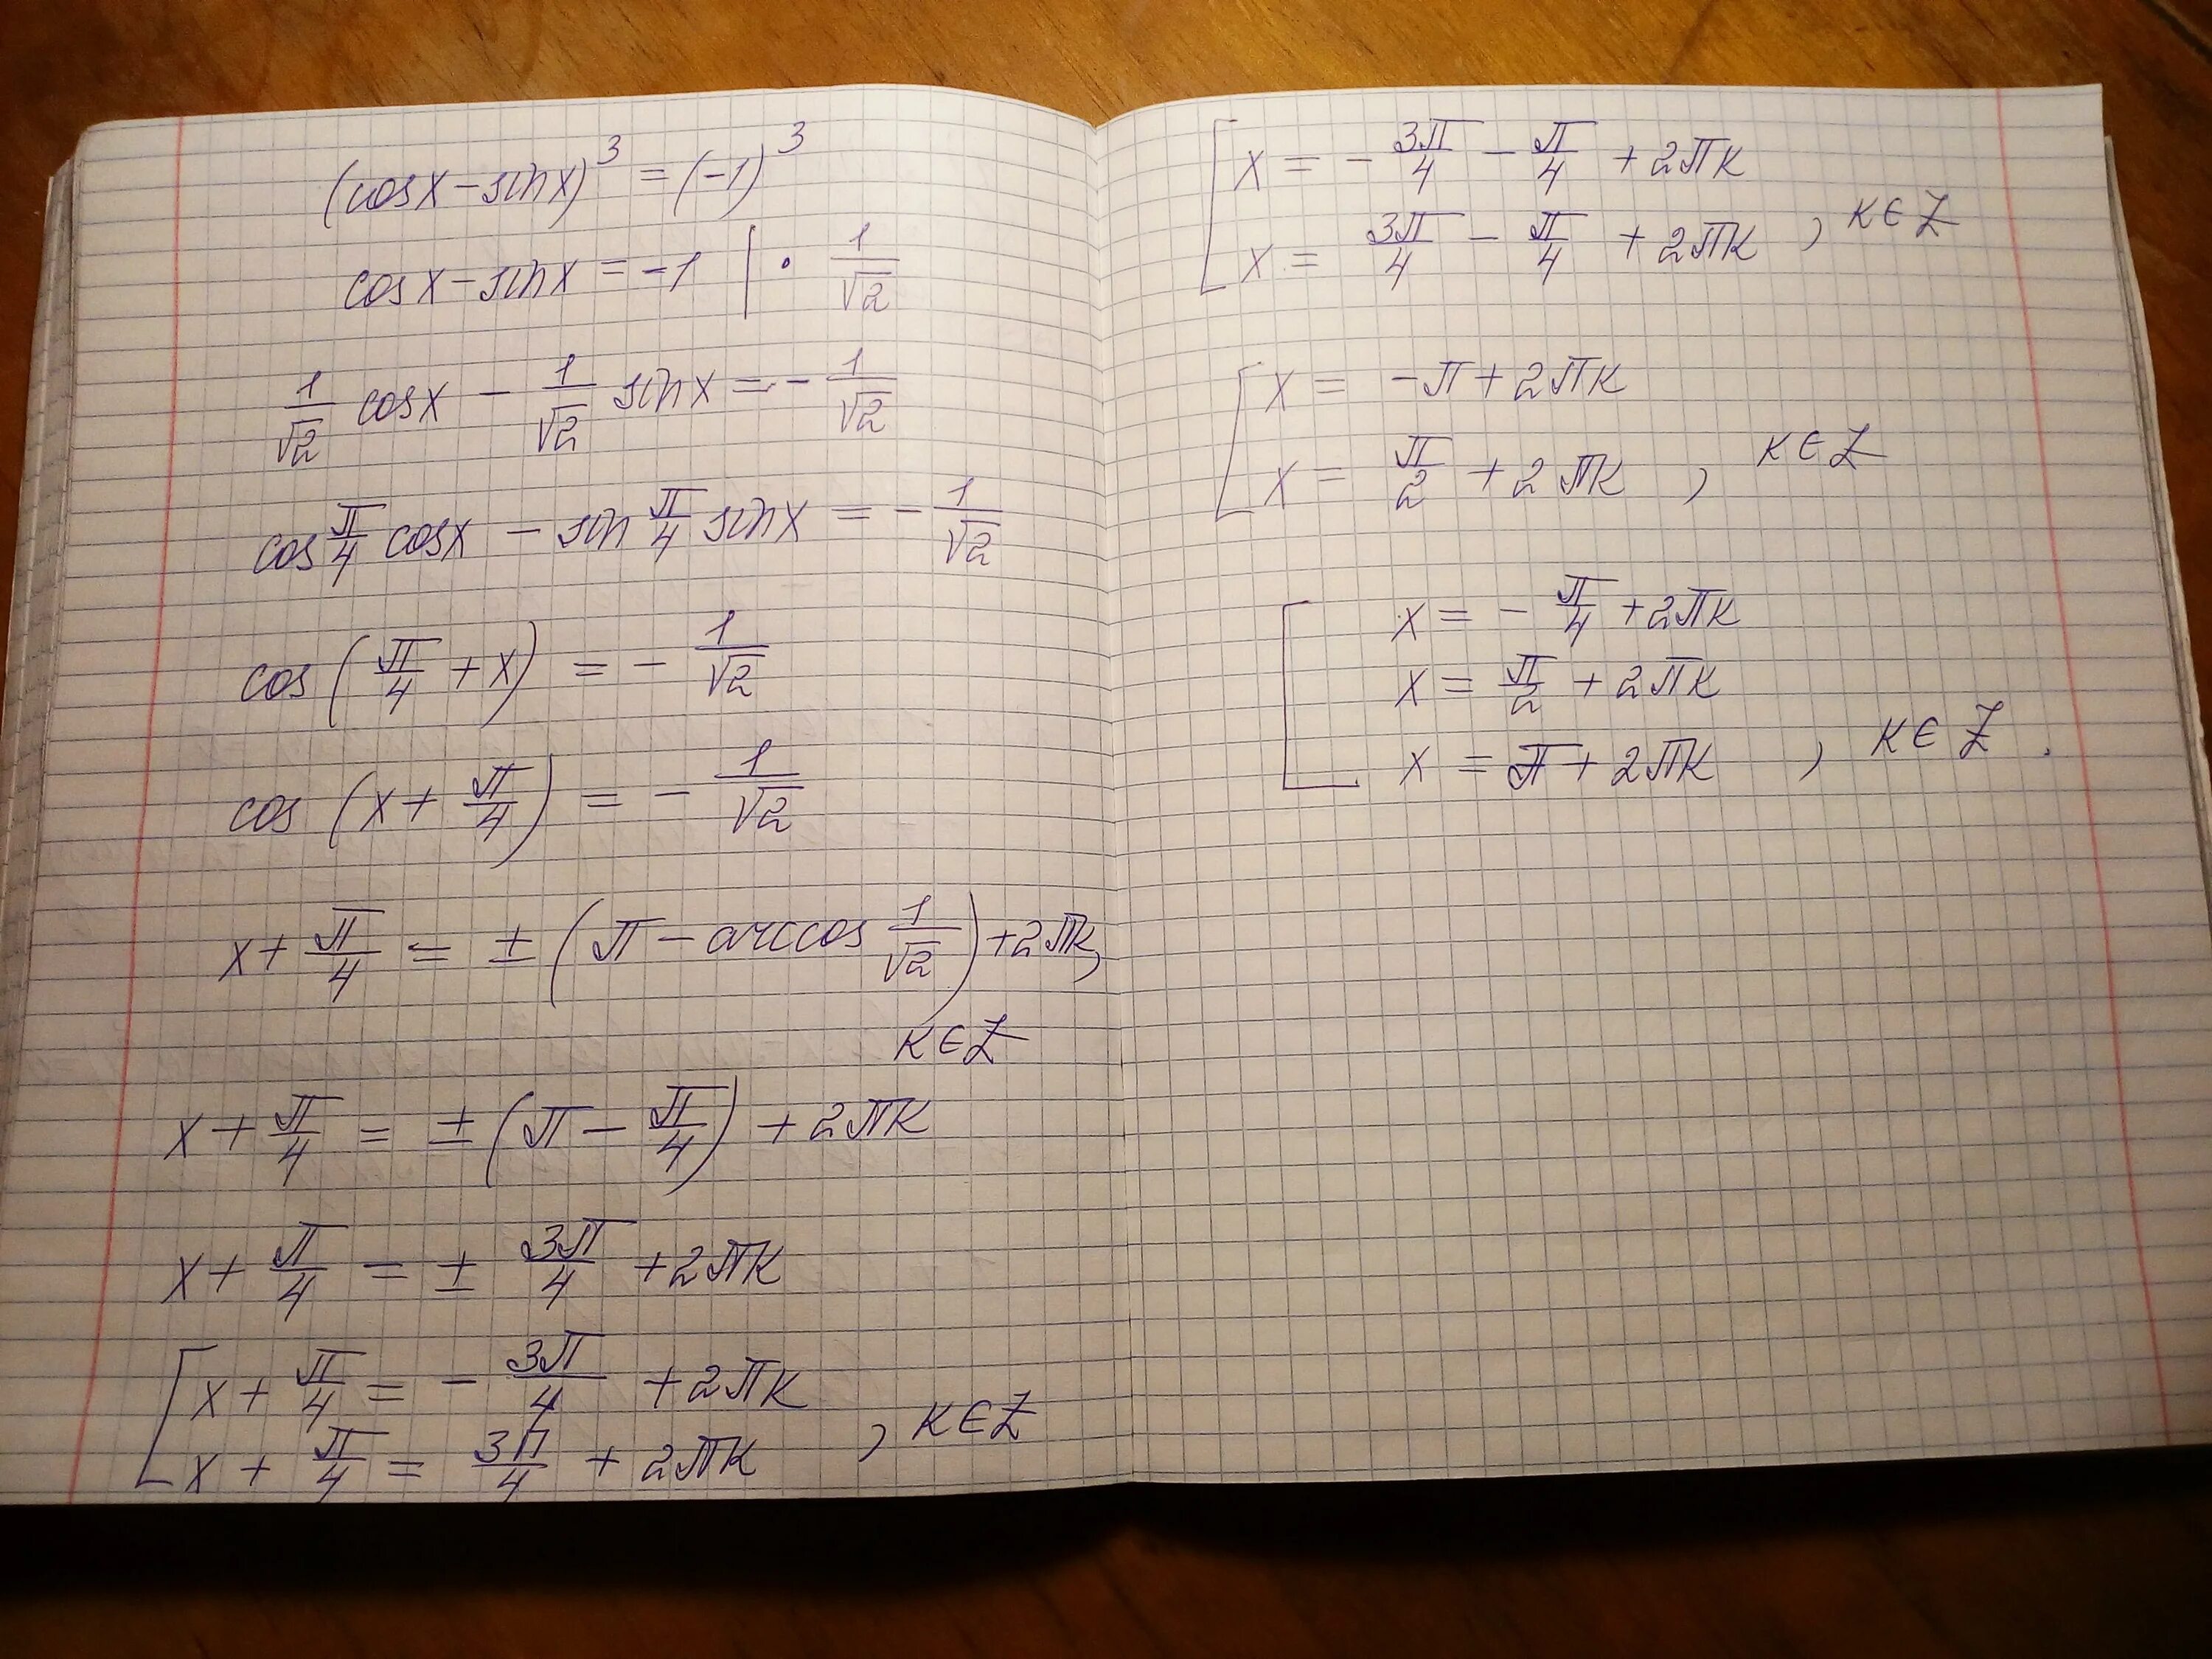 (cosx-sinx)³ = (-1)³
cosx-sinx = -1 | · 1/√2
1/√2 cosx - 1/√2 sinx = - 1/√2
cos π/4 cosx - sin π/4 sinx = - 1/√2
cos (π/4 + x) = - 1/√2
cos (x + π/4) = - 1/√2
x + π/4 = ± (π - arccos 1/√2) + 2πk,
k∈Z
x + π/4 = ± (π - π/4) + 2πk
x + π/4 = ± 3π/4 + 2πk
[ x + π/4 = - 3π/4 + 2πk
x + π/4 = 3π/4 + 2πk , k∈Z
[ x = - 3π/4 - π/4 + 2πk
x = 3π/4 - π/4 + 2πk , k∈Z
[ x = -π + 2πk
x = π/2 + 2πk , k∈Z
[ x = - π/4 + 2πk
x = π/2 + 2πk
x = π + 2πk , k∈Z .